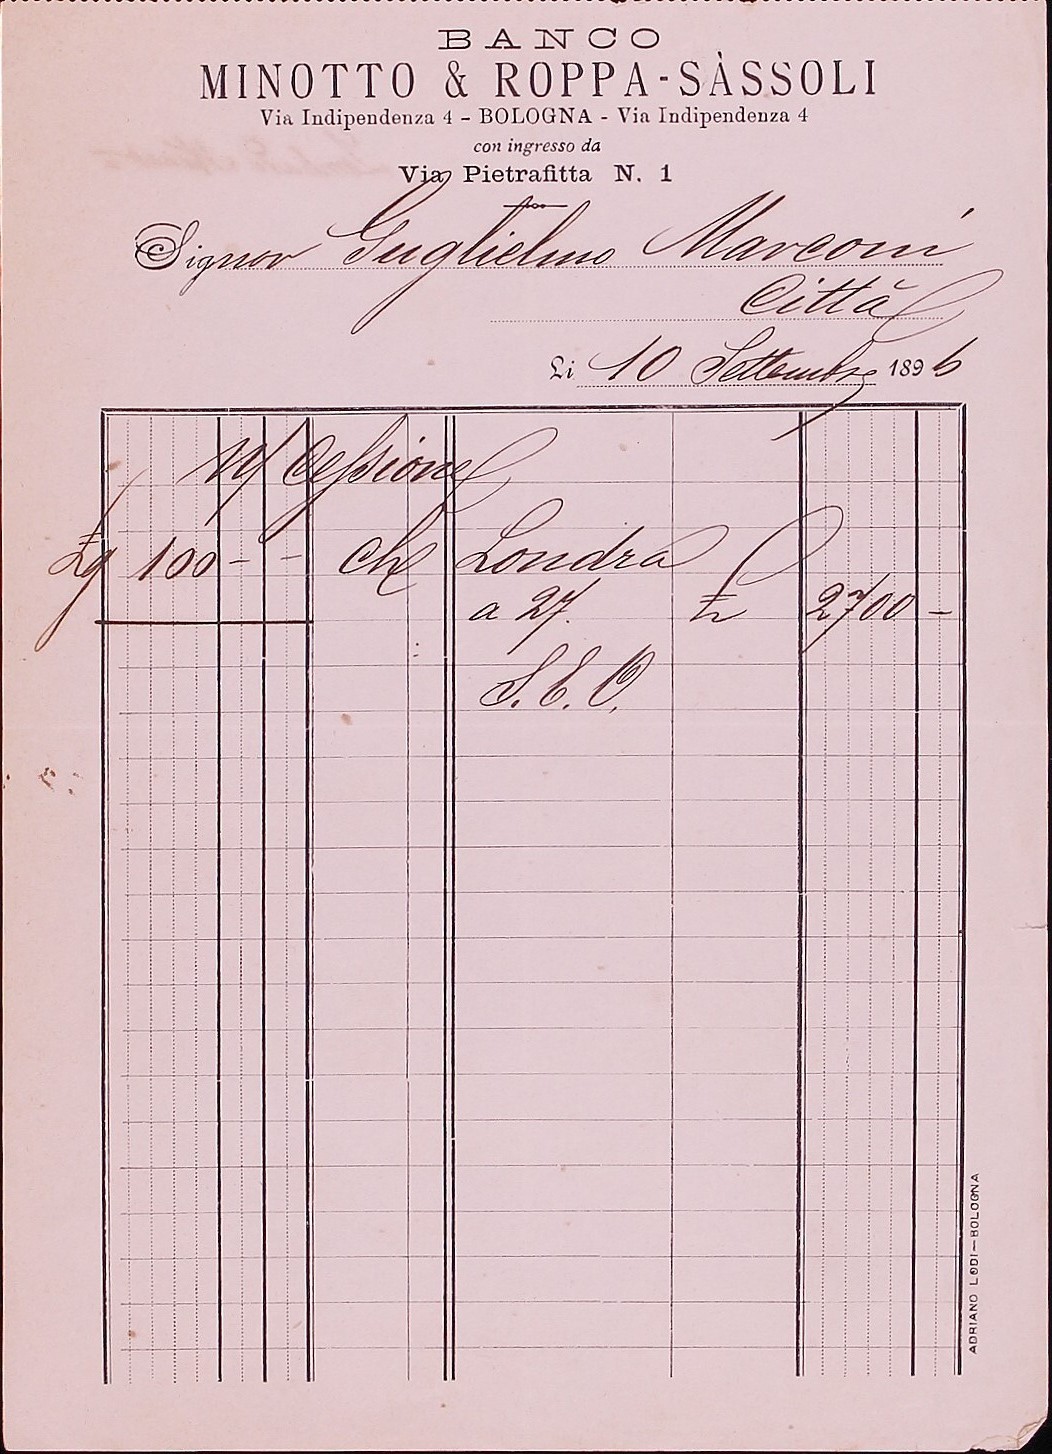 BANCO
MINOTTO & ROPPA-SÀSSOLI
Via Indipendenza 4 - BOLOGNA - Via Indipendenza 4
con ingresso da
Via Pietrafitta N. 1
Signor Guglielmo Marconi
Città
Li 10 Settembre 1896
N/ Cessione
£g 100 - - chè Londra
a 27. £ 2700 -
S. E. O.
ADRIANO LODI — BOLOGNA